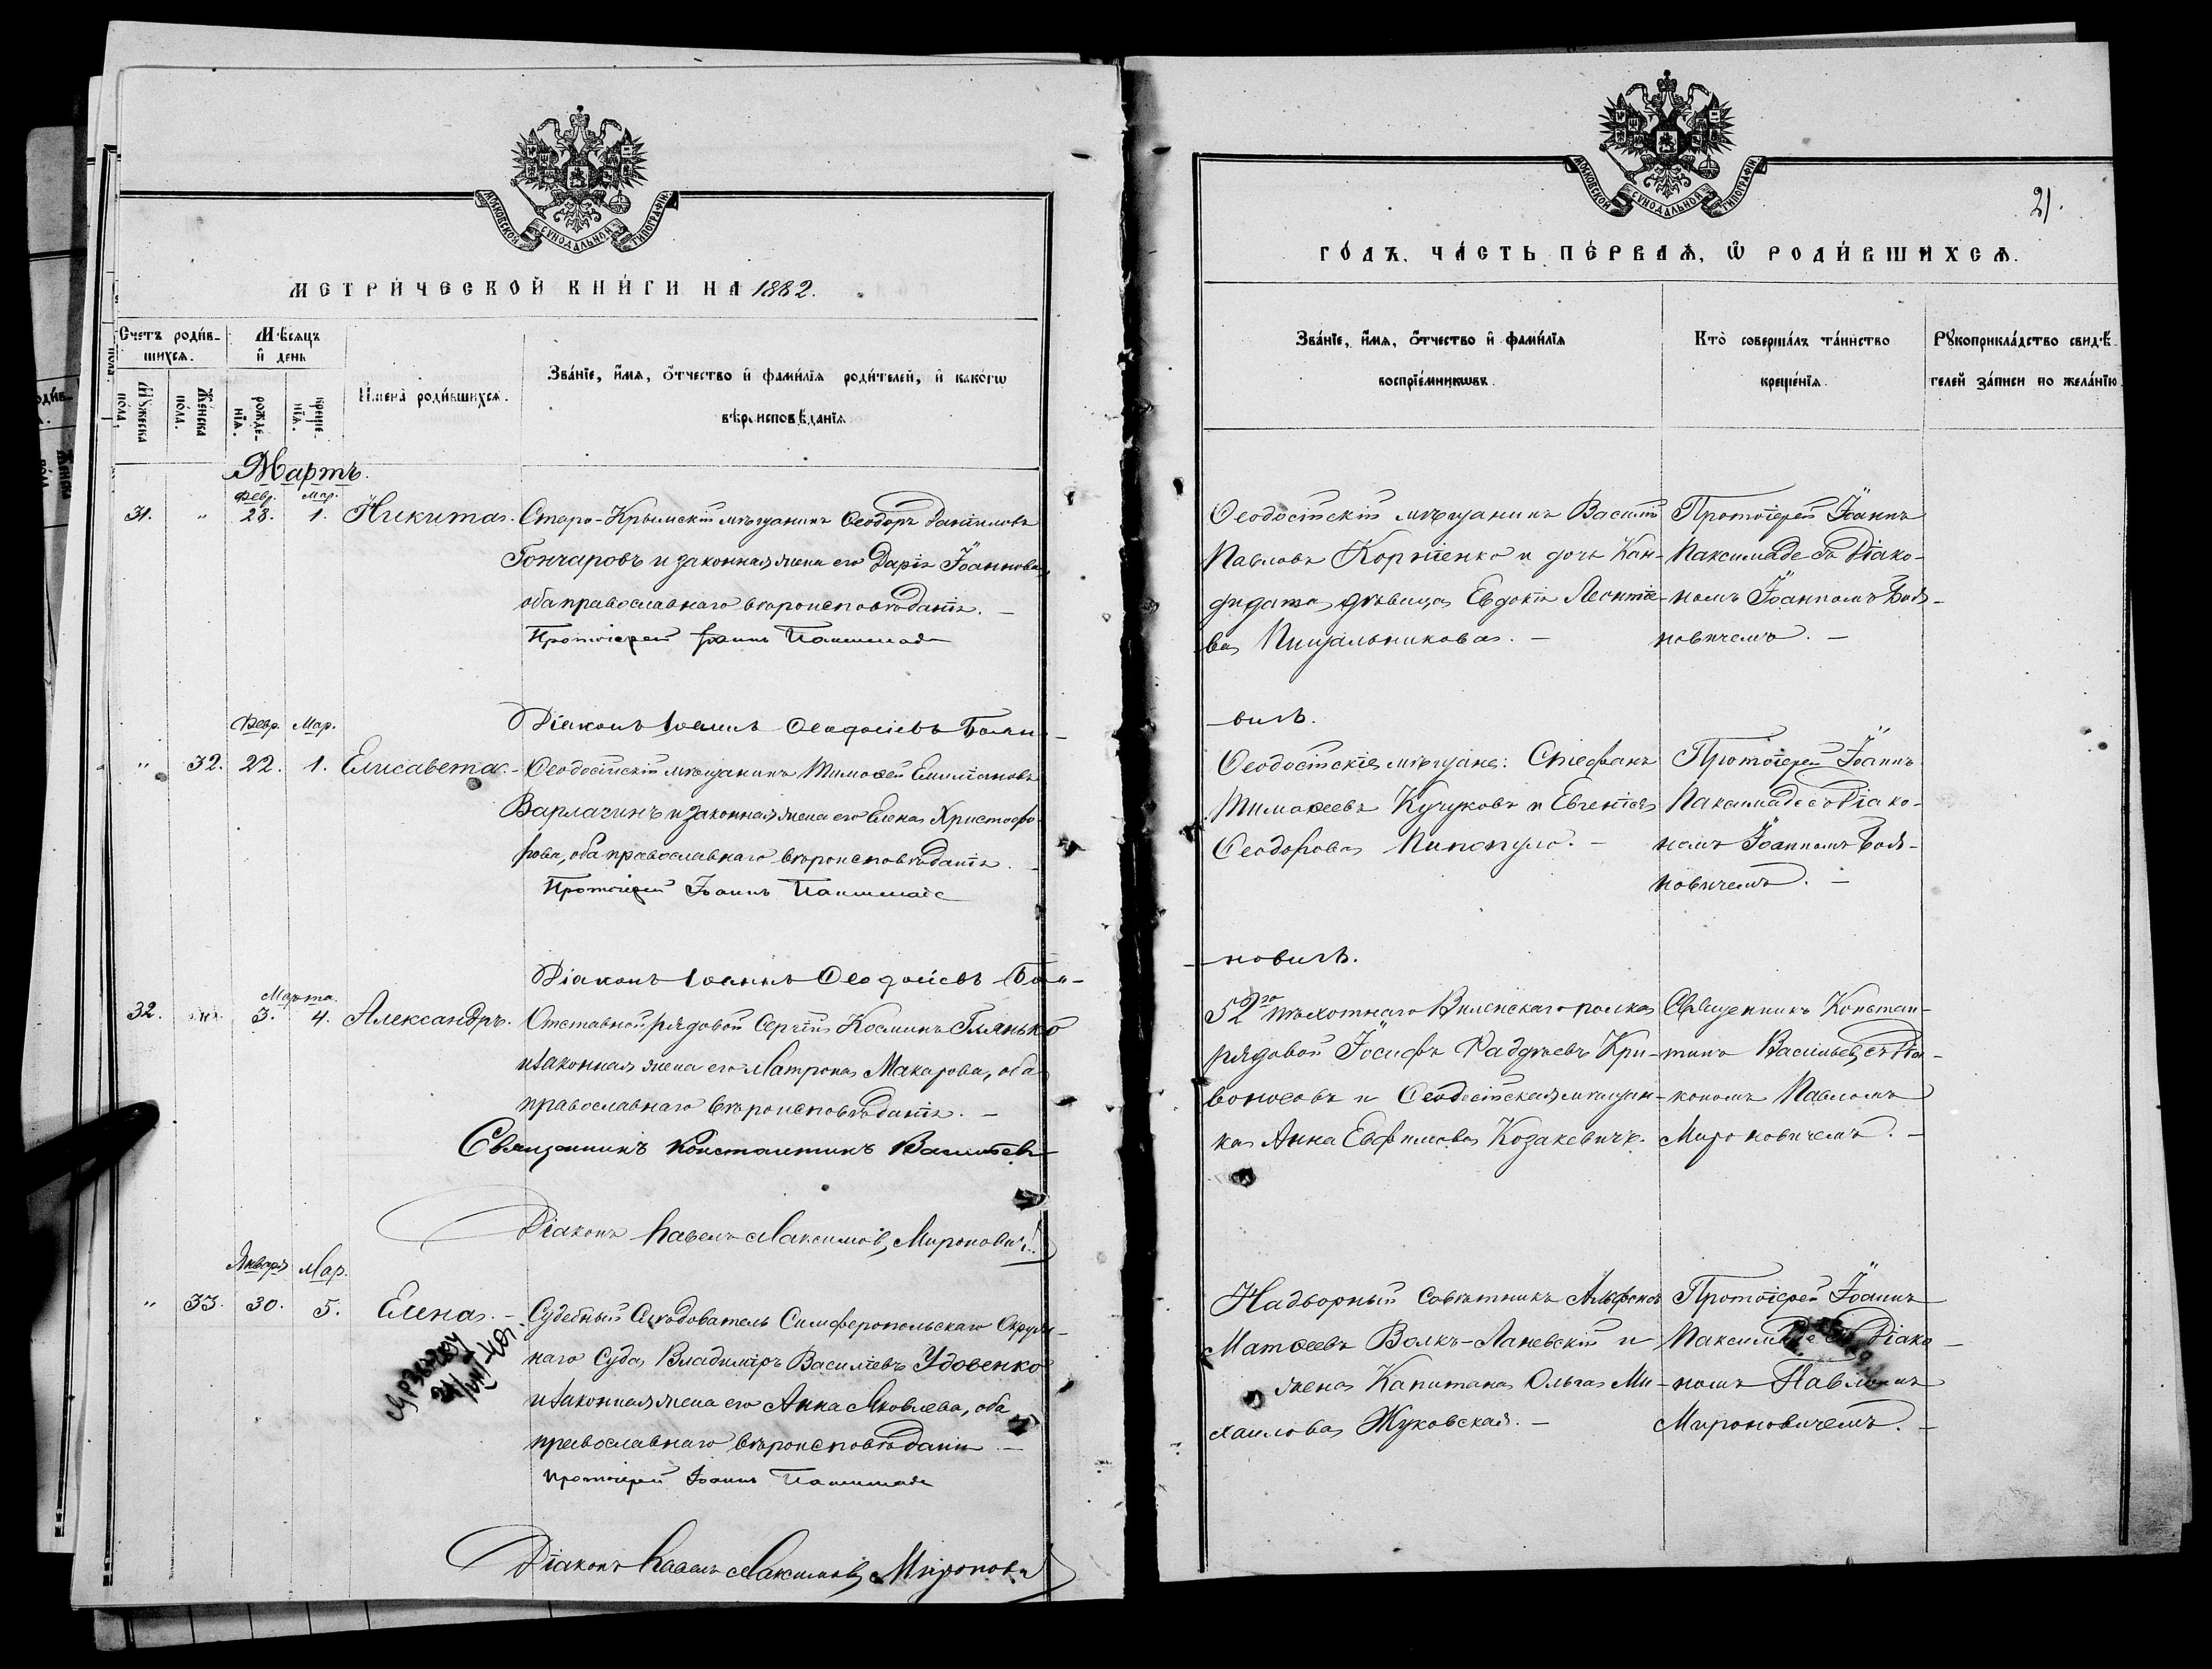 МОСКОВСКОЙ СѴНОДАЛЬНОЙ ТИПОГРАФІИ
МЕТРИ́ЧЕСКОЙ КНИ́ГИ НА 1882.
Счетъ роди́в-
шихсѧ.
Мѣсяцъ
и҆ день
Мꙋжеска по́ла.
Же́нска по́ла.
рожде-
нїѧ.
креще-
нїѧ.
И҆мена̀ роди́вшихсѧ.
Зва́нїе, и҆́мѧ, ѻ҆́тчество и҆ фами́лїѧ роди́телей, и҆ како́гѡ
вѣроисповѣ́данїѧ
Мартъ.
Февр. Мар.
31. " 28. 1. Никита. Старо-Крымскій мѣщанинъ Ѳеодоръ Даніиловъ
Гончаровъ и законная жена его Дарія Іоаннова,
оба православнаго вѣроисповѣданія. —
Протоіерей Іоаннъ Паксимаде
Діаконъ Іоаннъ Ѳеодосіевъ Боян-
Февр. Мар.
" 32. 22. 1. Елисавета. - Ѳеодосійскій мѣщанинъ Тимоѳей Емиліановъ
Варлагинъ и законная жена его Елена Христофо-
рова, оба православнаго вѣроисповѣданія. —
Протоіерей Іоаннъ Паксимаде
Діаконъ Іоаннъ Ѳеодосіевъ Боя-
Марта.
32. 3. 4. Александръ. Отставной рядовой Сергій Косминъ Глянько
и законная жена его Матрона Макарова, оба
православнаго вѣроисповѣданія. —
Священникъ Константинъ Васильевъ
Діаконъ Павелъ Максимовъ Мироновичъ
Января Мар.
" 33. 30. 5. Елена. - Судебный Слѣдователь Симферопольскаго Окруж-
наго Суда Владиміръ Василіевъ Удовенко
и законная жена его Анна Яковлева, оба
православнаго вѣроисповѣданія. —
Протоіерей Іоаннъ Паксимаде
Діаконъ Павелъ Максимовъ Миронови
МОСКОВСКОЙ СѴНОДАЛЬНОЙ ТИПОГРАФІИ
21.
ГО́ДЪ. ЧА́СТЬ ПЕ́РВАѦ, Ѡ҆ РОДИ́ВШИХСѦ.
Зва́нїе, и҆́мѧ, ѻ҆́тчество и҆ фами́лїѧ
воспрїе́мникѡвъ.
Кто̀ соверша́лъ та́инство
креще́нїѧ.
Рꙋкоприкла́дство свидѣ́-
телей за́писи по жела́нїю
Ѳеодосійскій мѣщанинъ Василій
Павловъ Корніенко и дочь Кан-
дидата дѣвица Евдокія Леонтіе-
ва Пищальникова. —
Протоіерей Іоаннъ
Паксимаде съ Діако-
номъ Іоанномъ Боя-
новичемъ. —
-вичъ.
Ѳеодосійскіе мѣщане: Стефанъ
Тимоѳеевъ Кучуковъ и Евгенія
Ѳеодорова Пипопуло. —
Протоіерей Іоаннъ
Паксимаде съ Діако-
номъ Іоанномъ Боя-
новичемъ. —
-новичъ.
52го пѣхотнаго Виленскаго полка
рядовой Іосифъ Фаддѣевъ Кри-
воносовъ и Ѳеодосійская мѣщан-
ка Анна Евфимова Козакевичъ.
Священникъ Констан-
тинъ Васильевъ съ Діа-
кономъ Павломъ
Мироновичемъ. —
Надворный Совѣтникъ Альфонсъ
Матѳеевъ Волкъ-Ланевскій и
жена Капитана Ольга Ми-
хаилова Жуковская. —
Протоіерей Іоаннъ
Паксимаде съ Діако-
номъ Павломъ
Мироновичемъ. —